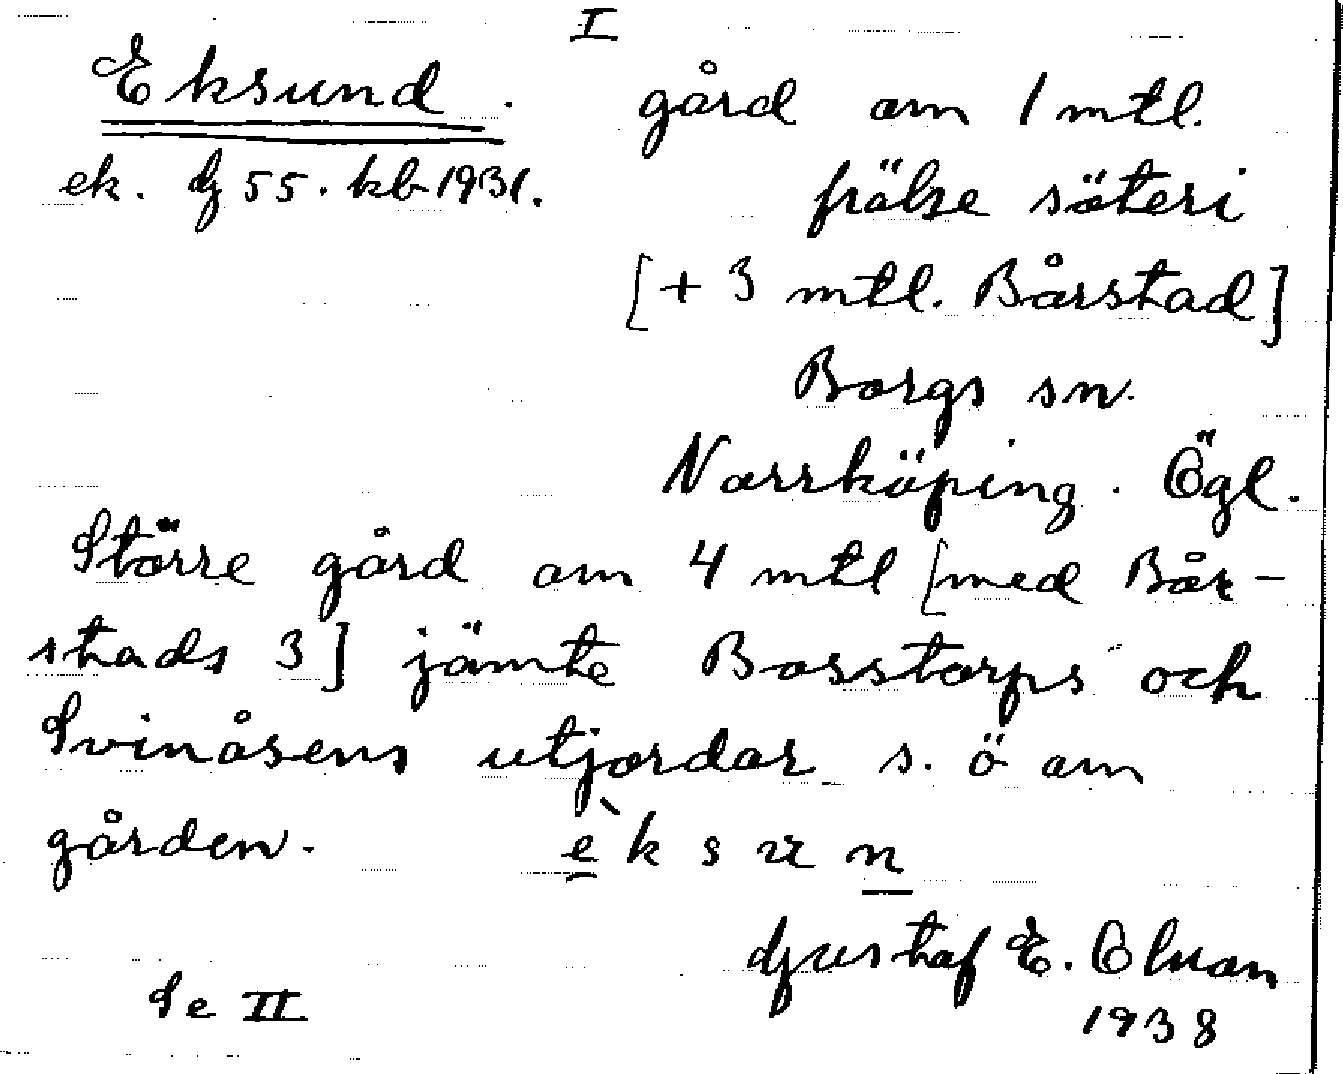 I
Eksund. gård om 1 mtl.
ek. bl 55. kb 1931. frälse säteri
[+ 3 mtl. Bårstad]
Borgs sn.
Norrköping. Ögl.
Större gård om 4 mtl [med Bår-
stads 3] jämte Bosstorps och
Svinåsens utjordar s. ö om
gården. èksun
Gustaf E. Olson
Se II 1938